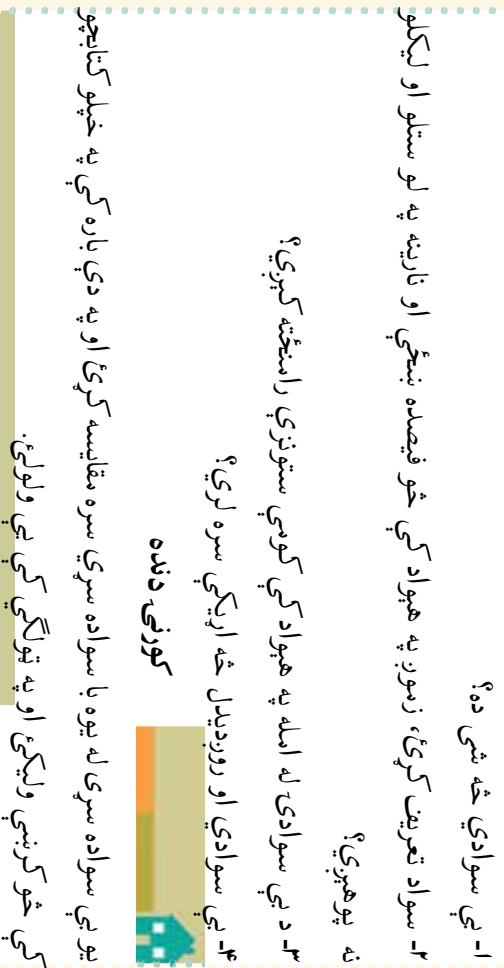 ۱ـ بې سوادي څه شی ده؟
۲ـ سواد تعریف کړئ، زموږ په هیواد کې څو فیصده ښځې او نارینه په لو ستلو او لیکلو
نه پوهیږي؟
۳ـ د بې سوادۍ له امله په هیواد کې کومې ستونزې رامنځته کیږي؟
۴ـ بې سوادي او روږدیدل څه اړیکې سره لري؟
کورنۍ دنده
یو بې سواده سړی له یوه با سواده سړي سره مقایسه کړئ او په دې باره کې په خپلو کتابچو
کې څو کرښې ولیکئ او په ټولګي کې یې ولولئ.